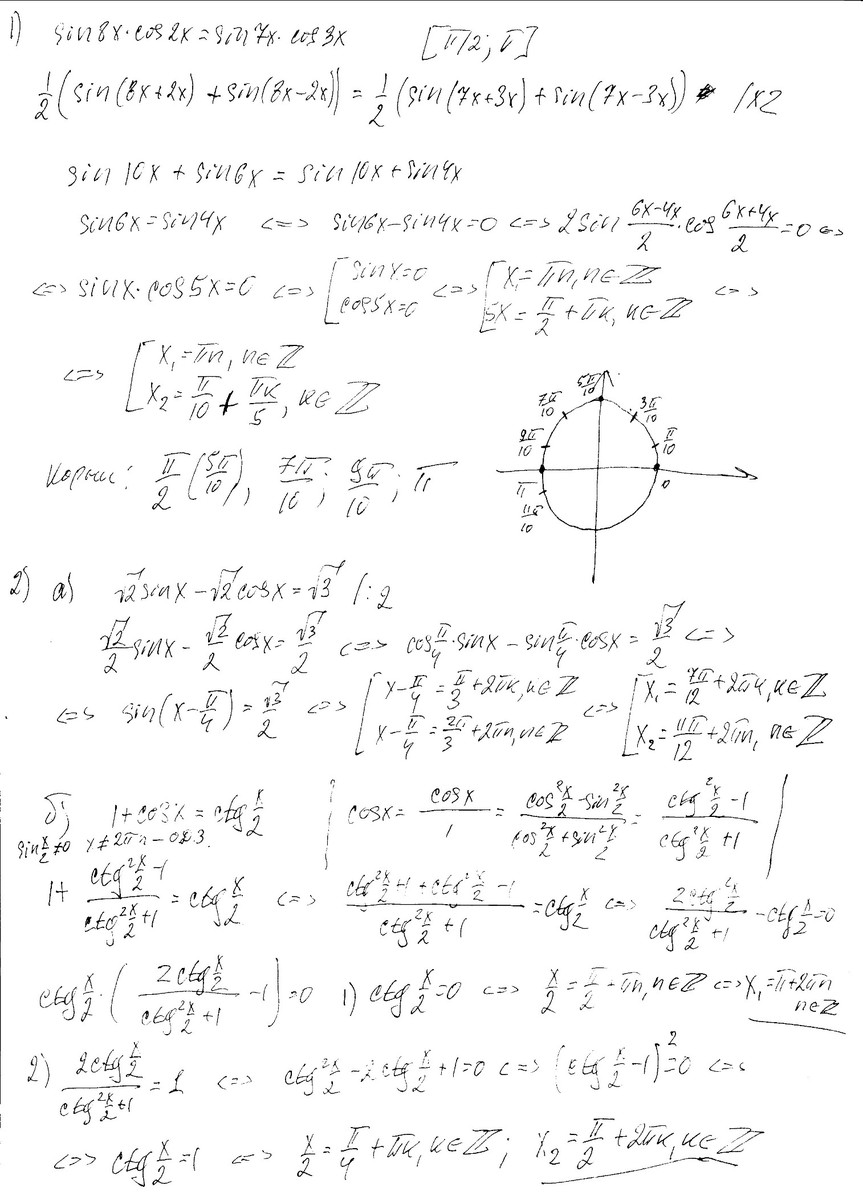 1) sin8x·cos2x=sin7x·cos3x [π/2; π]
1/2(sin(8x+2x)+sin(8x-2x))=1/2(sin(7x+3x)+sin(7x-3x)) /x2
sin10x+sin6x=sin10x+sin4x
sin6x=sin4x <=> sin6x-sin4x=0 <=> 2sin (6x-4x)/2 ·cos (6x+4x)/2=0 <=>
<=> sinx·cos5x=0 <=> [sinx=0 cos5x=0 <=> [x₁=πn, n∈ℤ 5x=π/2+πk, k∈ℤ <=>
<=> [x₁=πn, n∈ℤ x₂=π/10+πk/5, k∈ℤ
5π/10
7π/10 3π/10
9π/10 π/10
π 0
11π/10
Корни: π/2 (5π/10), 7π/10; 9π/10; π
2) а) √2sinx-√2cosx=√3 /:2
√2/2 sinx-√2/2 cosx=√3/2 <=> cos π/4·sinx-sin π/4·cosx=√3/2 <=>
<=> sin(x-π/4)=√3/2 <=> [x-π/4=π/3+2πk, k∈ℤ x-π/4=2π/3+2πn, n∈ℤ <=> [x₁=7π/12+2πk, k∈ℤ x₂=11π/12+2πn, n∈ℤ
б) 1+cosx=ctg x/2 | cosx=cosx/1=(cos² x/2-sin² x/2)/(cos² x/2+sin² x/2)=(ctg² x/2-1)/(ctg² x/2+1) |
sin x/2≠0 x≠2πn-ОДЗ.
1+(ctg² x/2-1)/(ctg² x/2+1)=ctg x/2 <=> (ctg² x/2+1+ctg² x/2-1)/(ctg² x/2+1)=ctg x/2 <=> (2ctg² x/2)/(ctg² x/2+1)-ctg x/2=0
ctg x/2·((2ctg x/2)/(ctg² x/2+1)-1)=0 1) ctg x/2=0 <=> x/2=π/2+πn, n∈ℤ <=> x₁=π+2πn n∈ℤ
2) (2ctg x/2)/(ctg² x/2+1)=1 <=> ctg² x/2-2ctg x/2+1=0 <=> (ctg x/2-1)²=0 <=>
<=> ctg x/2=1 <=> x/2=π/4+πk, k∈ℤ; x₂=π/2+2πk, k∈ℤ